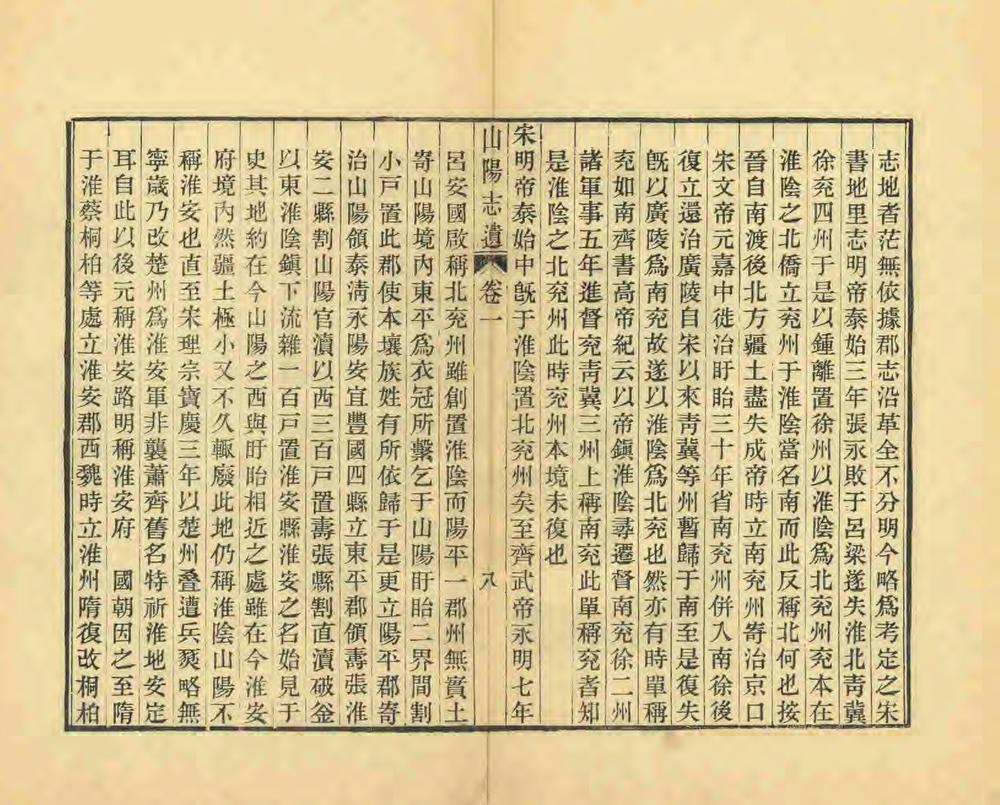 志地者茫無依據郡志沿革全不分明今略爲考定之宋
書地里志明帝泰始三年張永敗于呂梁遂失淮北靑冀
徐兖四州于是以鍾離置徐州以淮陰爲北兖州兖本在
淮陰之北僑立兖州于淮陰當名南而此反稱北何也按
晉自南渡後北方疆土盡失成帝時立南兖州寄治京口
宋文帝元嘉中徙治盱眙三十年省南兖州併入南徐後
復立還治廣陵自宋以來靑冀等州暫歸于南至是復失
旣以廣陵爲南兖故遂以淮陰爲北兖也然亦有時單稱
兖如南齊書高帝紀云以帝鎭淮陰尋遷督南兖徐二州
諸軍事五年進督兖靑冀三州上稱南兖此單稱兖者知
是淮陰之北兖州此時兖州本境未復也
宋明帝泰始中旣于淮陰置北兖州矣至齊武帝永明七年
山陽志遺 卷一 八
呂安國啟稱北兖州雖創置淮陰而陽平一郡州無實土
寄山陽境內東平爲衣冠所繫乞于山陽盱眙二界間割
小戸置此郡使本壤族姓有所依歸于是更立陽平郡寄
治山陽領泰淸永陽安宜豐國四縣立東平郡領壽張淮
安二縣割山陽官瀆以西三百戸置壽張縣割直瀆破釜
以東淮陰鎭下流雜一百戸置淮安縣淮安之名始見于
史其地約在今山陽之西與盱眙相近之處雖在今淮安
府境內然疆土極小又不久輒廢此地仍稱淮陰山陽不
稱淮安也直至宋理宗寶慶三年以楚州疊遭兵燹略無
寧歲乃改楚州爲淮安軍非襲蕭齊舊名特祈淮地安定
耳自此以後元稱淮安路明稱淮安府 國朝因之至隋
于淮蔡桐柏等處立淮安郡西魏時立淮州隋復改桐柏